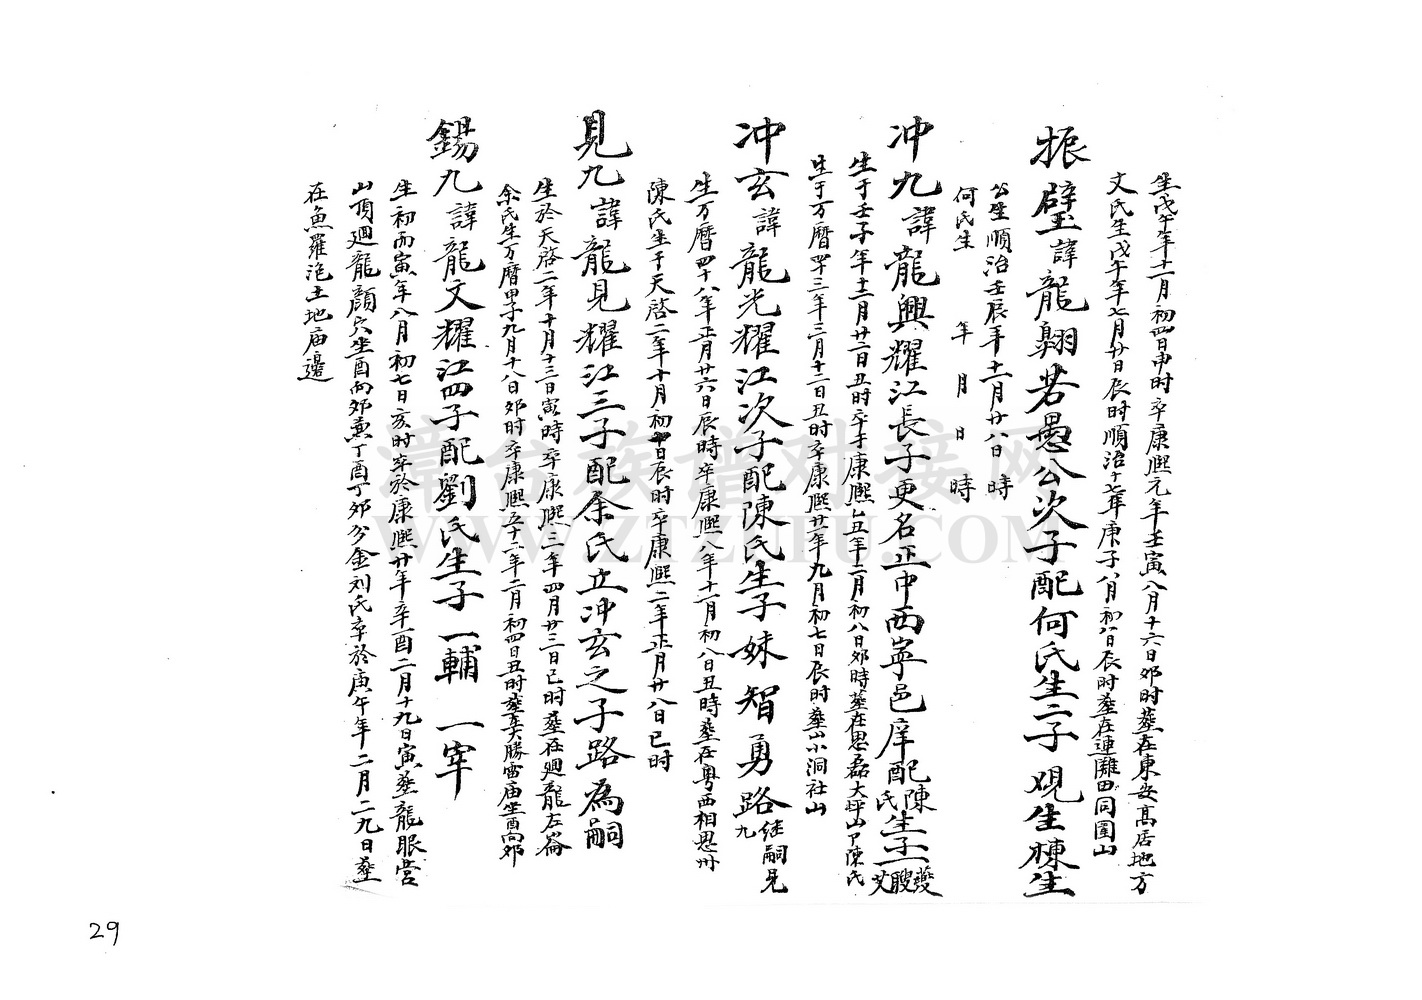 生戊午年十一月初四日申时卒康熙元年壬寅八月十六日卯时葬在東安高居地方
文氏生戊午年七月廿日辰时順治十七年庚子八月初八日辰时葬在連灘田同圍山
振璧諱龍翱若愚公次子配何氏生二子 覌生 棟生
公生順治壬辰年十二月廿八日 時
何氏生 年 月 日 時
冲九諱龍興耀江長子更名正中西寧邑庠配陳氏生子一夔 艘 艾
生于壬子年十二月廿二日丑时卒于康熙乙丑年二月初八日卯時葬在思磊大坪山下陳氏
生于万曆四十三年三月十二日丑时卒康熙廿一年九月初七日辰时葬山小洞社山
冲玄諱龍光耀江次子配陳氏生子妹 智 勇 路継嗣見九
生万曆四十八年正月廿六日辰時卒康熙八年十二月初八日丑時葬在粤西相思州
陳氏生于天啓二年十月初十日辰时卒康熙二年正月廿八日巳时
見九諱龍見耀江三子配余氏立冲玄之子路為嗣
生於天啓二年十月十三日寅時卒康熙三年四月廿三日巳时葬在廻龍左崙
余氏生万曆甲子九月十八日卯时卒康熙五十二年二月初四日丑时葬在大勝雷庙坐酉向卯
錫九諱龍文耀江四子配劉氏生子 一輔 一宰
生初而寅年八月初七日亥时卒於康熙廿年辛酉二月十九日寅葬龍眼营
山頂廻龍顏穴坐酉向卯兼丁酉丁卯分金刘氏卒於庚午年二月二九日葬
在魚羅沲土地庙邊
29
漳台族谱对接网
WWW.ZTZUPU.COM